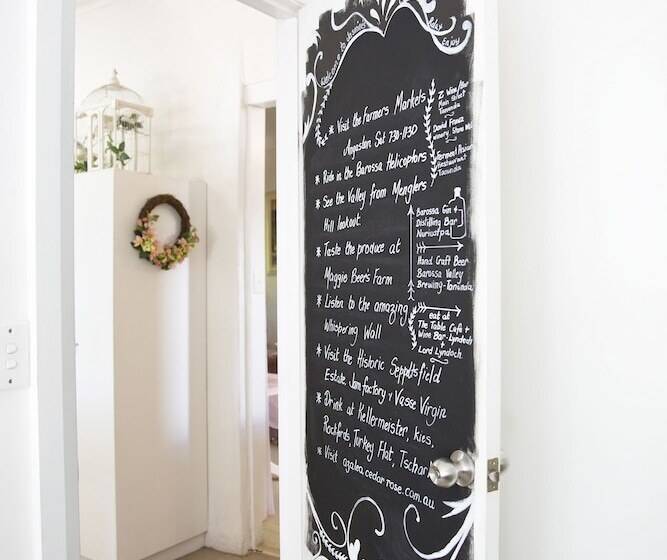 Welcome to
Relax
Enjoy
* Visit the Farmers Markets
Angaston Sat 7.30-11.30
* Ride in the Barossa Helicopters
* See the Valley from Menglers
Hill lookout.
* Taste the produce at
Maggie Beer's Farm
* Listen to the amazing
Whispering Wall
* Visit the Historic Seppltsfield
Estate, Jam factory + Vasse Virgin
* Drink at Kellermeister, kies,
Rockfords, Turkey Flat, Tschar
* Visit azalea.cedar rose.com.au
Z Wine Bar
Main Street
Tanunda
David Franz
Winery, Stone Well
Ferment Asian
Restaurant
Tanunda
Barossa Gin +
Distilling Bar
Nuriootpa
Hand Craft Beer
Barossa Valley
Brewing-Tanunda
eat at
The Table Cafe +
Wine Bar-Lyndoch
Lord Lyndoch